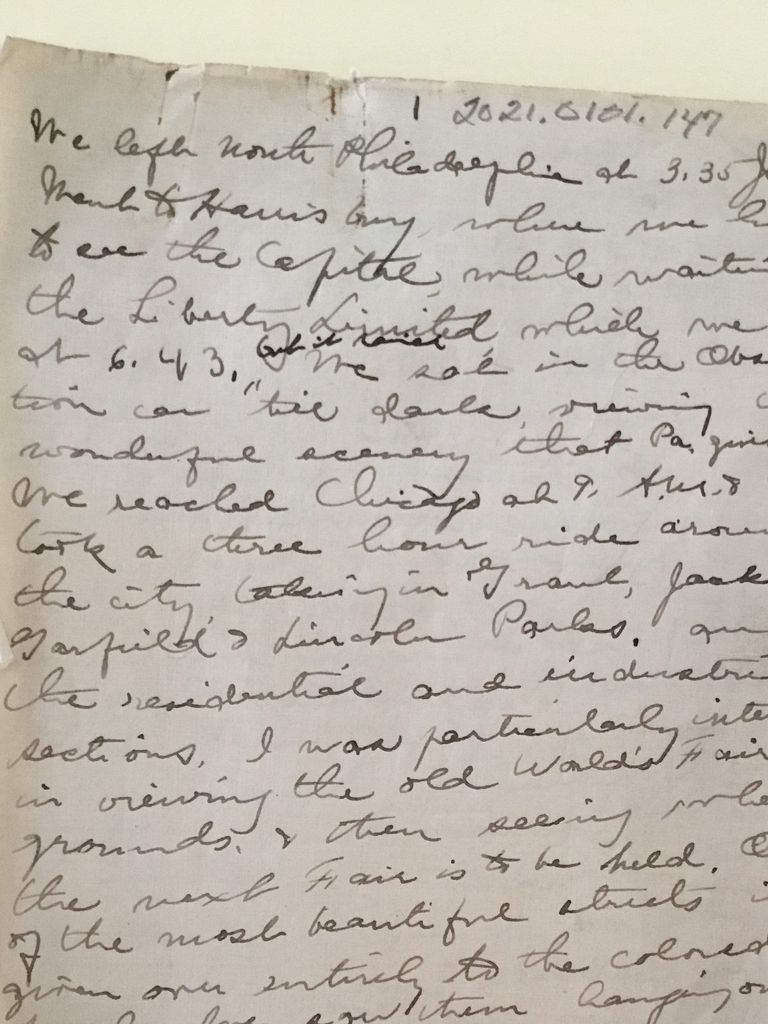 1 2021.0101.147
We left North Philadelphia at 3.35
Went to Harrisburg, where we
to see the Capital, while
the Liberty Limited which we
at 6.43, but it rained We sat in the Obs
tion car "till dark, viewing
wonderful scenery that Pa.
We reached Chicago at 9. A.M. &
took a three hour ride
the city, taking in Grant, Jack
Garfield & Lincoln Parks.
the residential and industri
sections. I was particularly inte
in viewing the old World's Fair
grounds. & then seeing whe
the next Fair is to be held.
of the most beautiful streets
given over entirely to the colored
saw them hanging